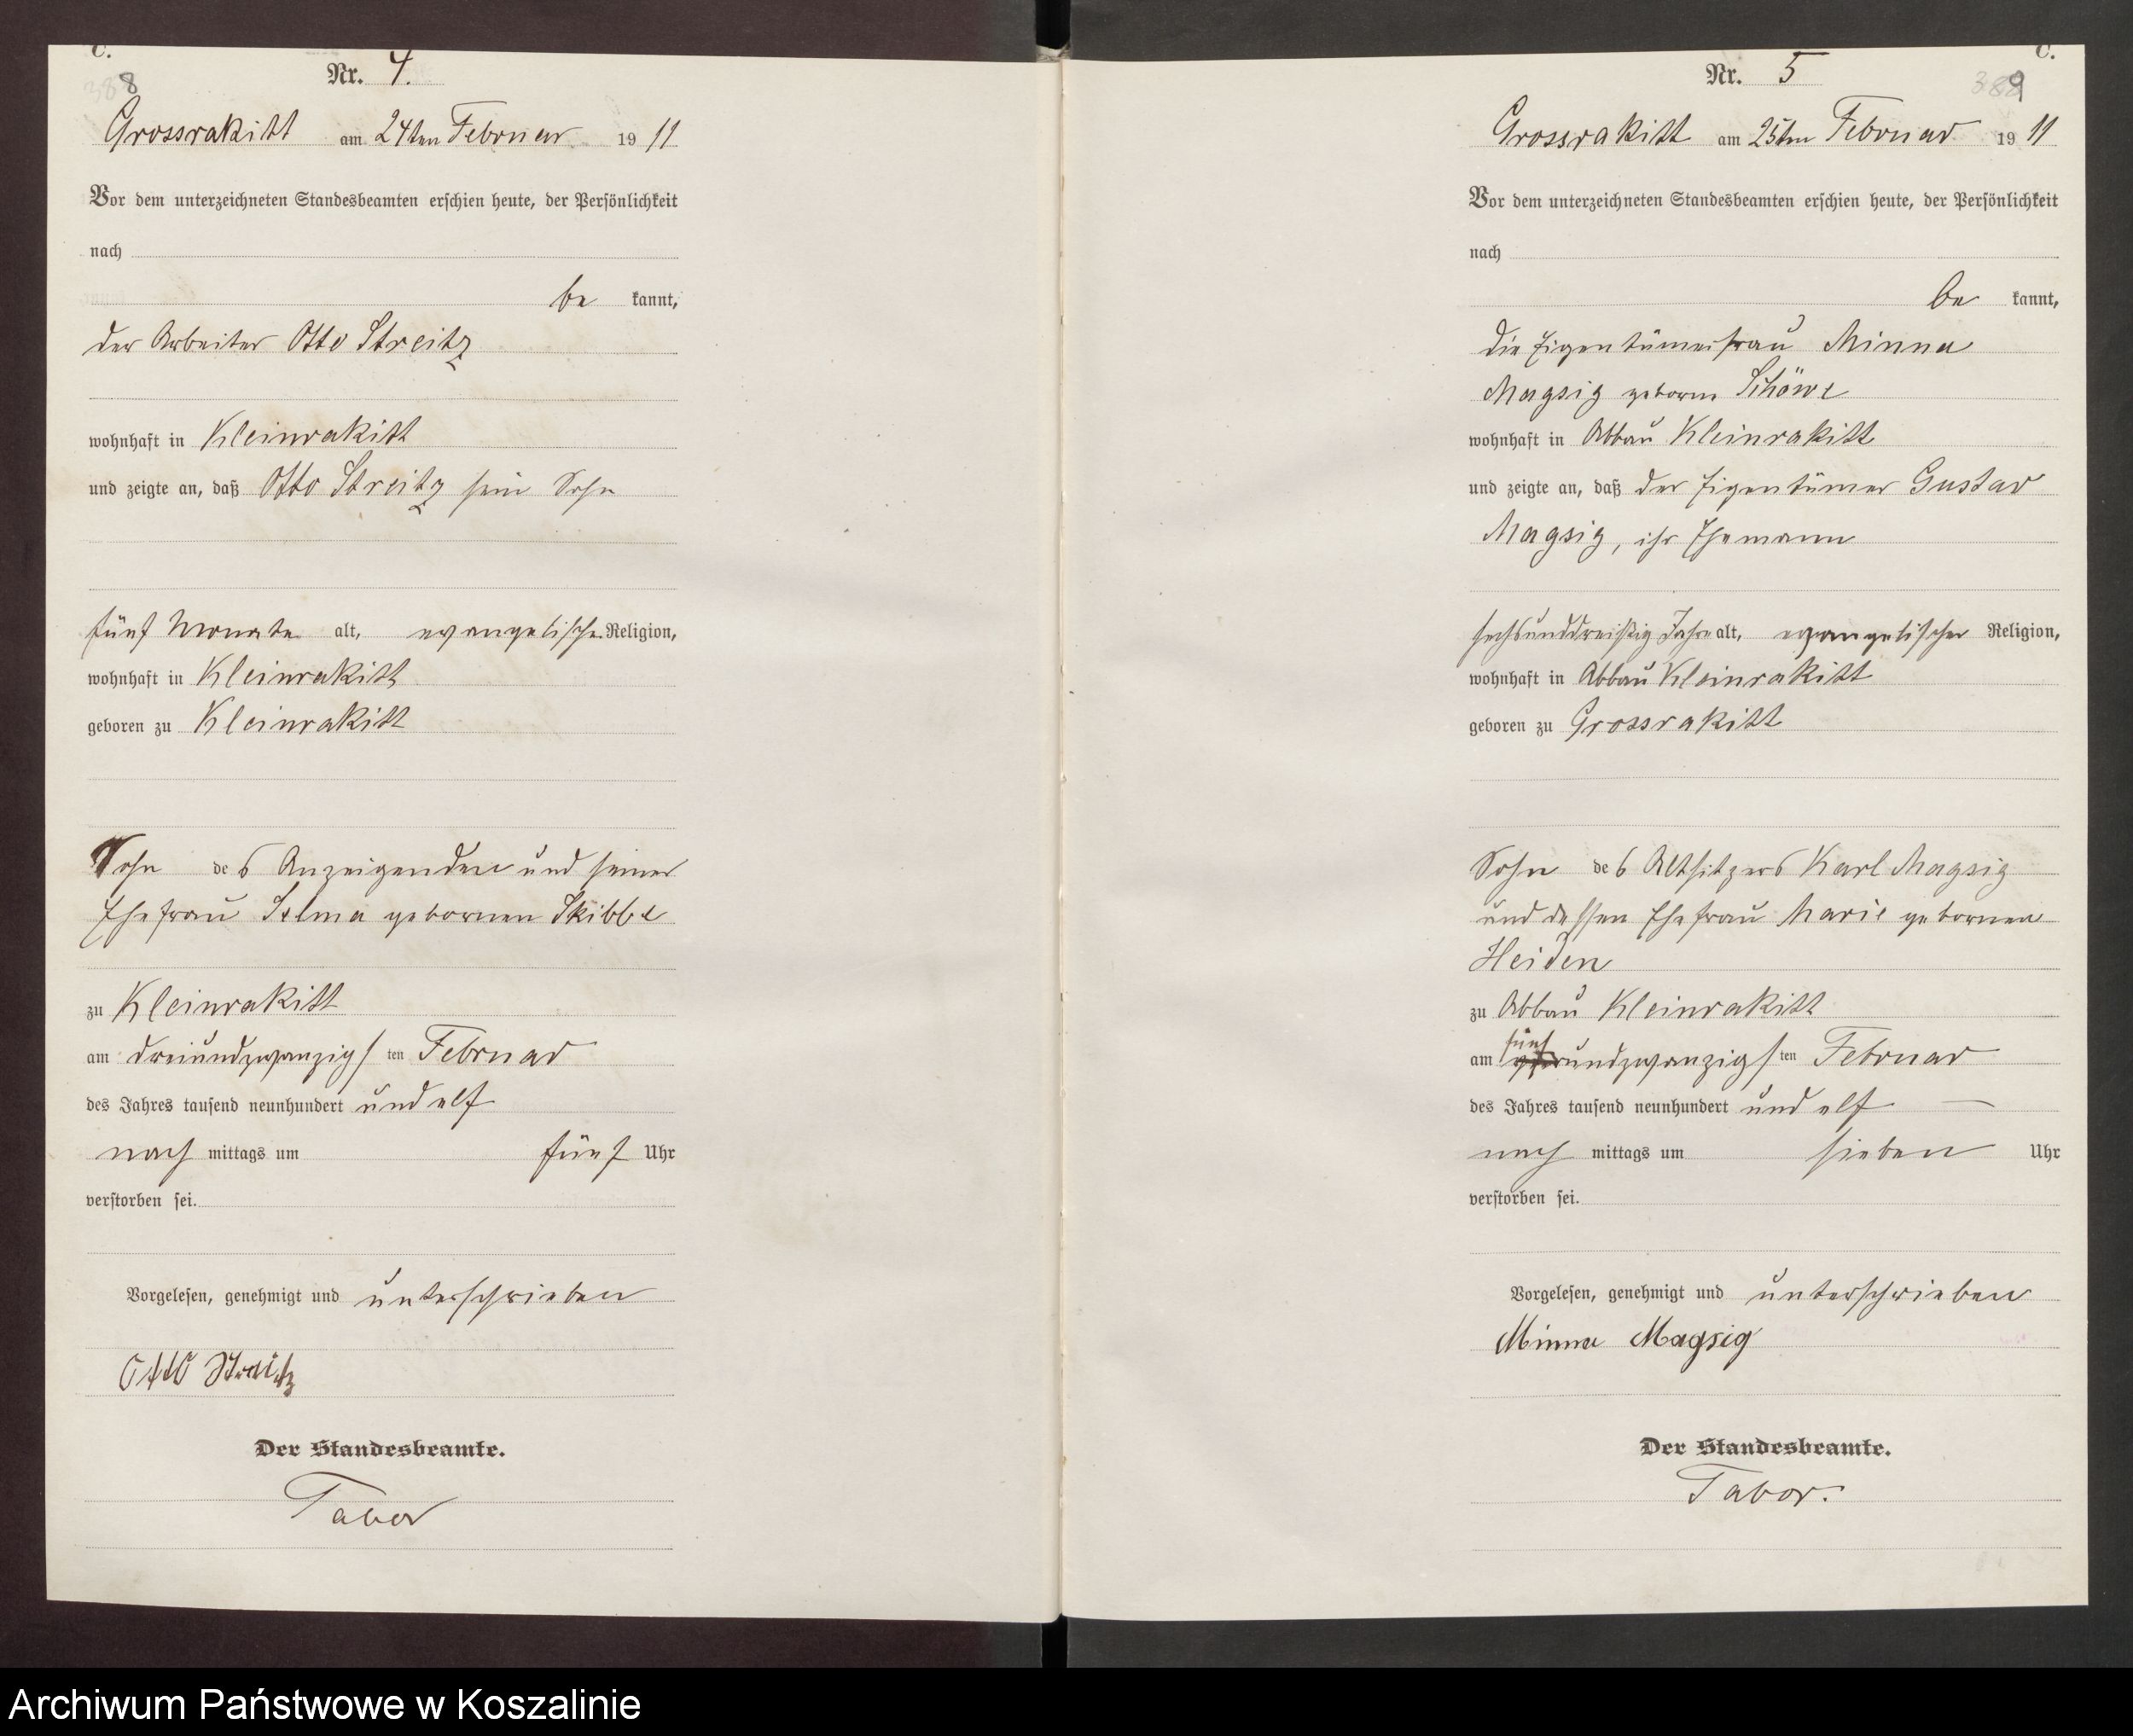 C.
388
Nr. 4.
Grossrakitt am 24ten Februar 1911
Vor dem unterzeichneten Standesbeamten erschien heute, der Persönlichkeit
nach
be kannt,
der Arbeiter Otto Streitz
wohnhaft in Kleinrakitt
und zeigte an, daß Otto Streitz sein Sohn
fünf Monate alt, evangelischer Religion,
wohnhaft in Kleinrakitt
geboren zu Kleinrakitt
Sohn des Anzeigenden und seiner
Ehefrau Selma gebornen Skibbe
zu Kleinrakitt
am dreiundzwanzigsten Februar
des Jahres tausend neunhundert und elf
nach mittags um fünf Uhr
verstorben sei.
Vorgelesen, genehmigt und unterschrieben
Otto Streitz
Der Standesbeamte.
Tabor
C.
389
Nr. 5
Grossrakitt am 25ten Februar 1911
Vor dem unterzeichneten Standesbeamten erschien heute, der Persönlichkeit
nach
be kannt,
die Eigentümerfrau Minna
Magsig geborne Schöwe
wohnhaft in Abbau Kleinrakitt
und zeigte an, daß der Eigentümer Gustav
Magsig, ihr Ehemann
sechsunddreißig Jahre alt, evangelischer Religion,
wohnhaft in Abbau Kleinrakitt
geboren zu Grossrakitt
Sohn des Altsitzers Karl Magsig
und dessen Ehefrau Marie gebornen
Heiden
zu Abbau Kleinrakitt
fünf
am undzwanzigsten Februar
des Jahres tausend neunhundert und elf —
nach mittags um sieben Uhr
verstorben sei.
Vorgelesen, genehmigt und unterschrieben
Minna Magsig
Der Standesbeamte.
Tabor.
Archiwum Państwowe w Koszalinie